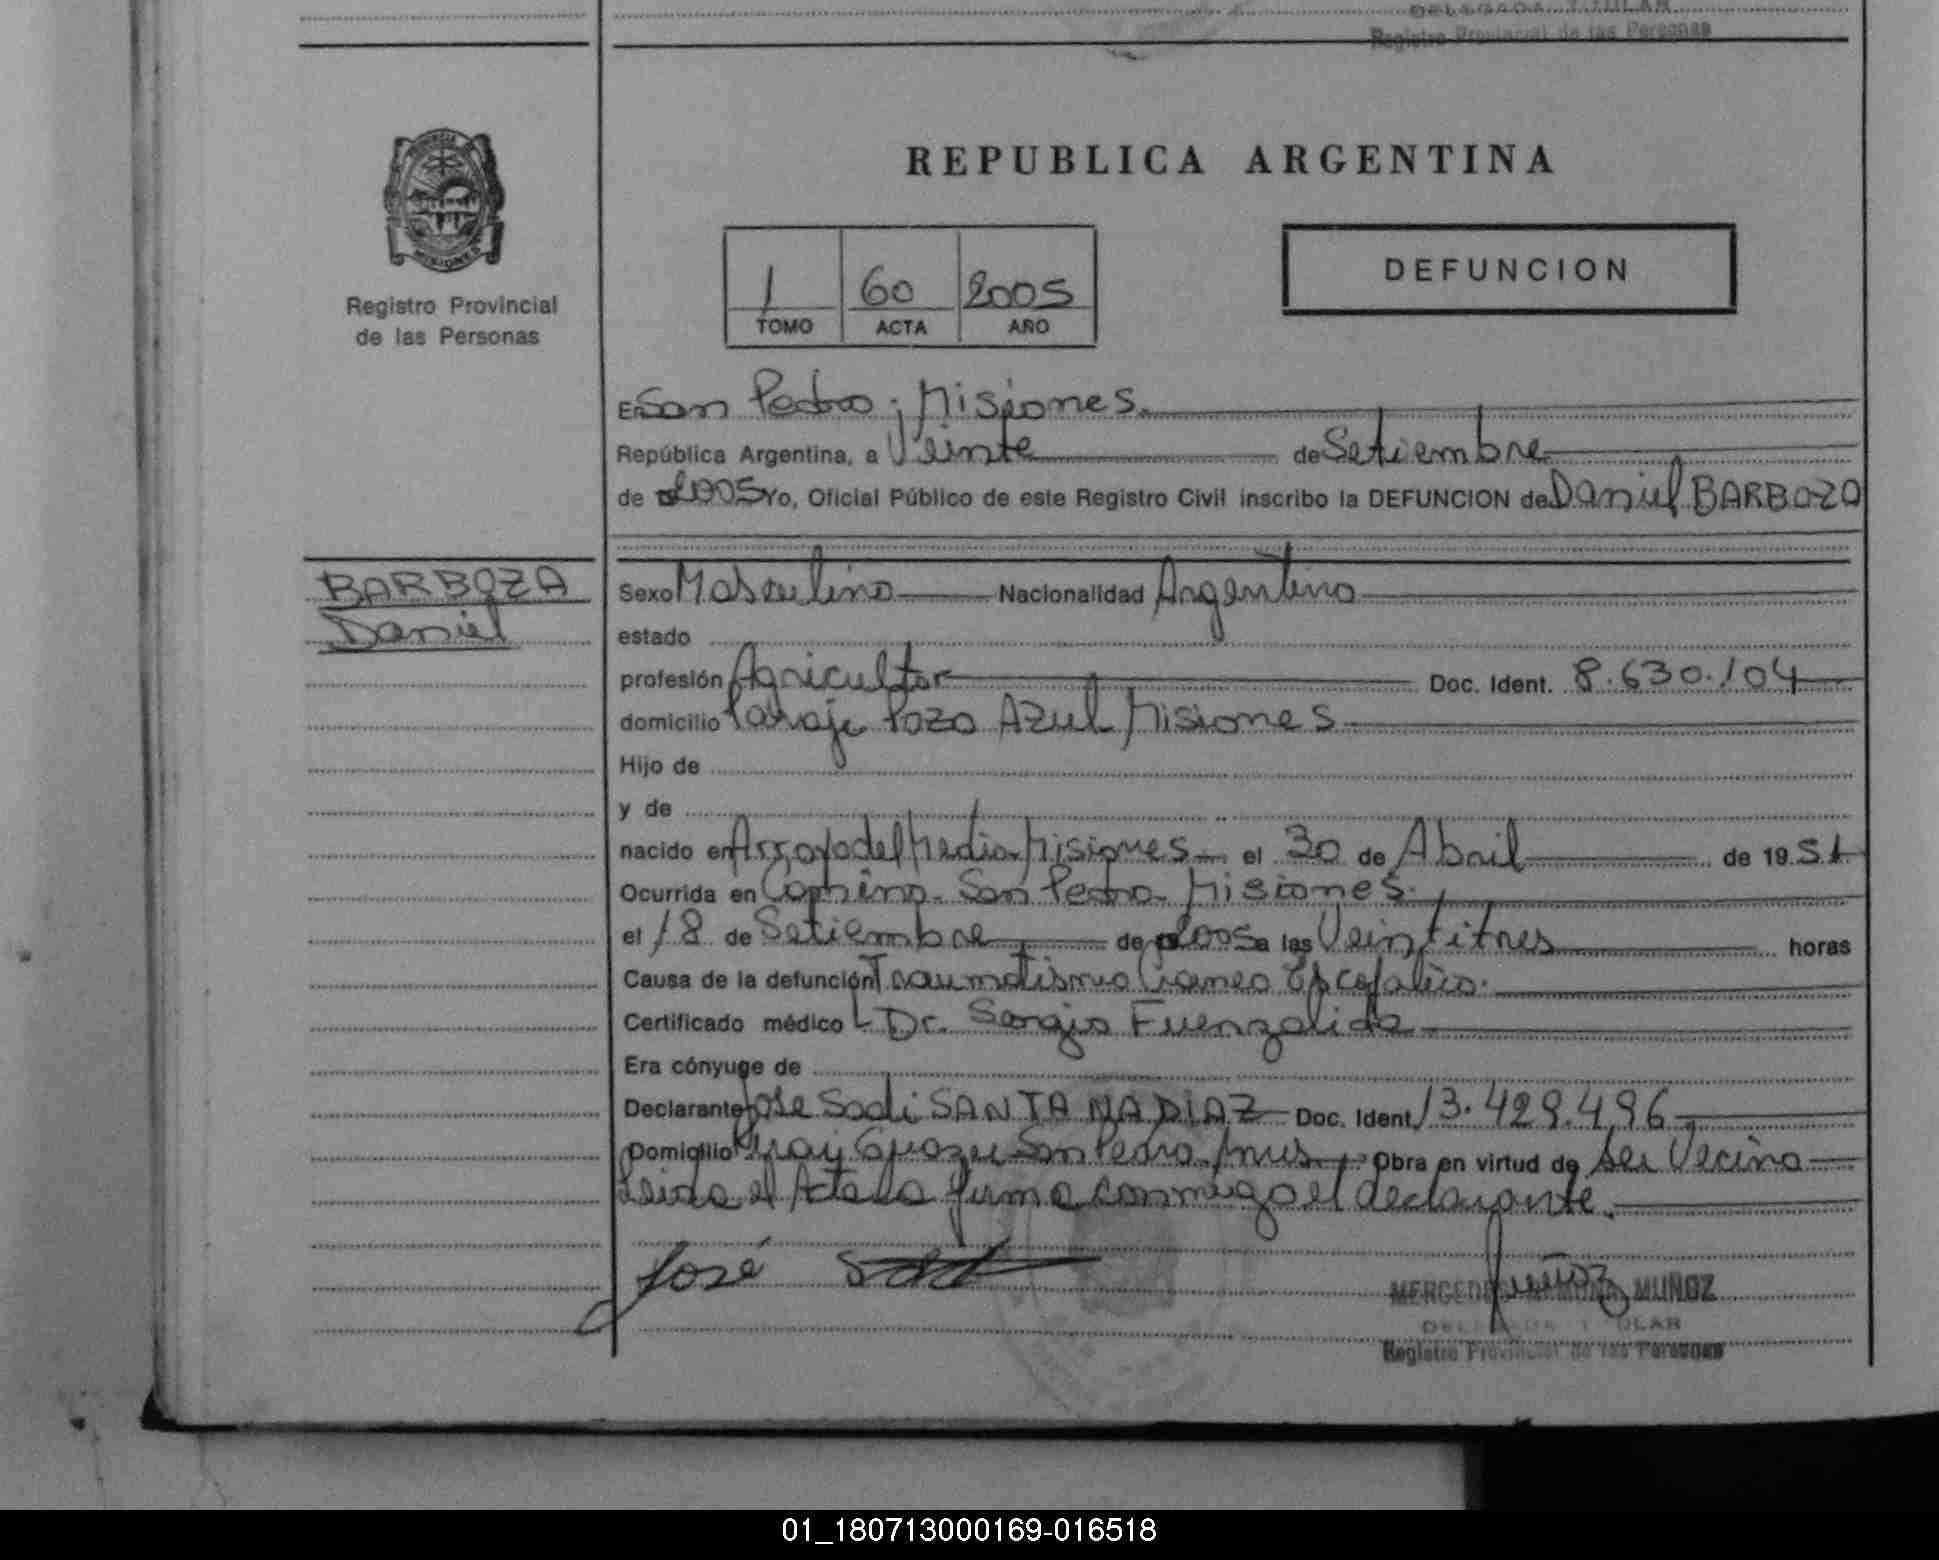 DELEGADA TITULAR
Registro Provincial de las Personas
PROVINCIA
MISIONES
Registro Provincial
de las Personas
REPUBLICA ARGENTINA
1 60 2005
TOMO ACTA AÑO
DEFUNCION
En San Pedro, Misiones.
República Argentina, a Veinte de Setiembre
de 2005 Yo, Oficial Público de este Registro Civil inscribo la DEFUNCION de Daniel BARBOZA
BARBOZA
Daniel
Sexo Masculino Nacionalidad Argentino
estado
profesión Agricultor Doc. Ident. 8.630.104
domicilio Paraje Pozo Azul Misiones
Hijo de
y de
nacido en Arroyo del Medio Misiones el 30 de Abril de 1951
Ocurrida en Camino San Pedro Misiones.
el 18 de Setiembre de 2005 a las Veintitres horas
Causa de la defunción Traumatismo Craneo
Certificado médico Dr. Sergio Fuenzalida
Era cónyuge de
Declarante José Sadi SANTANA DIAZ Doc. Ident. 13.429.496
Domicilio Piray Guazu San Pedro Mnes Obra en virtud de Ser Vecino
Leida el Acta la firma conmigo el declarante.
José
Muñoz
MERCEDES RAMONA MUÑOZ
DELEGADA TITULAR
Registro Provincial de las Personas
01_180713000169-016518